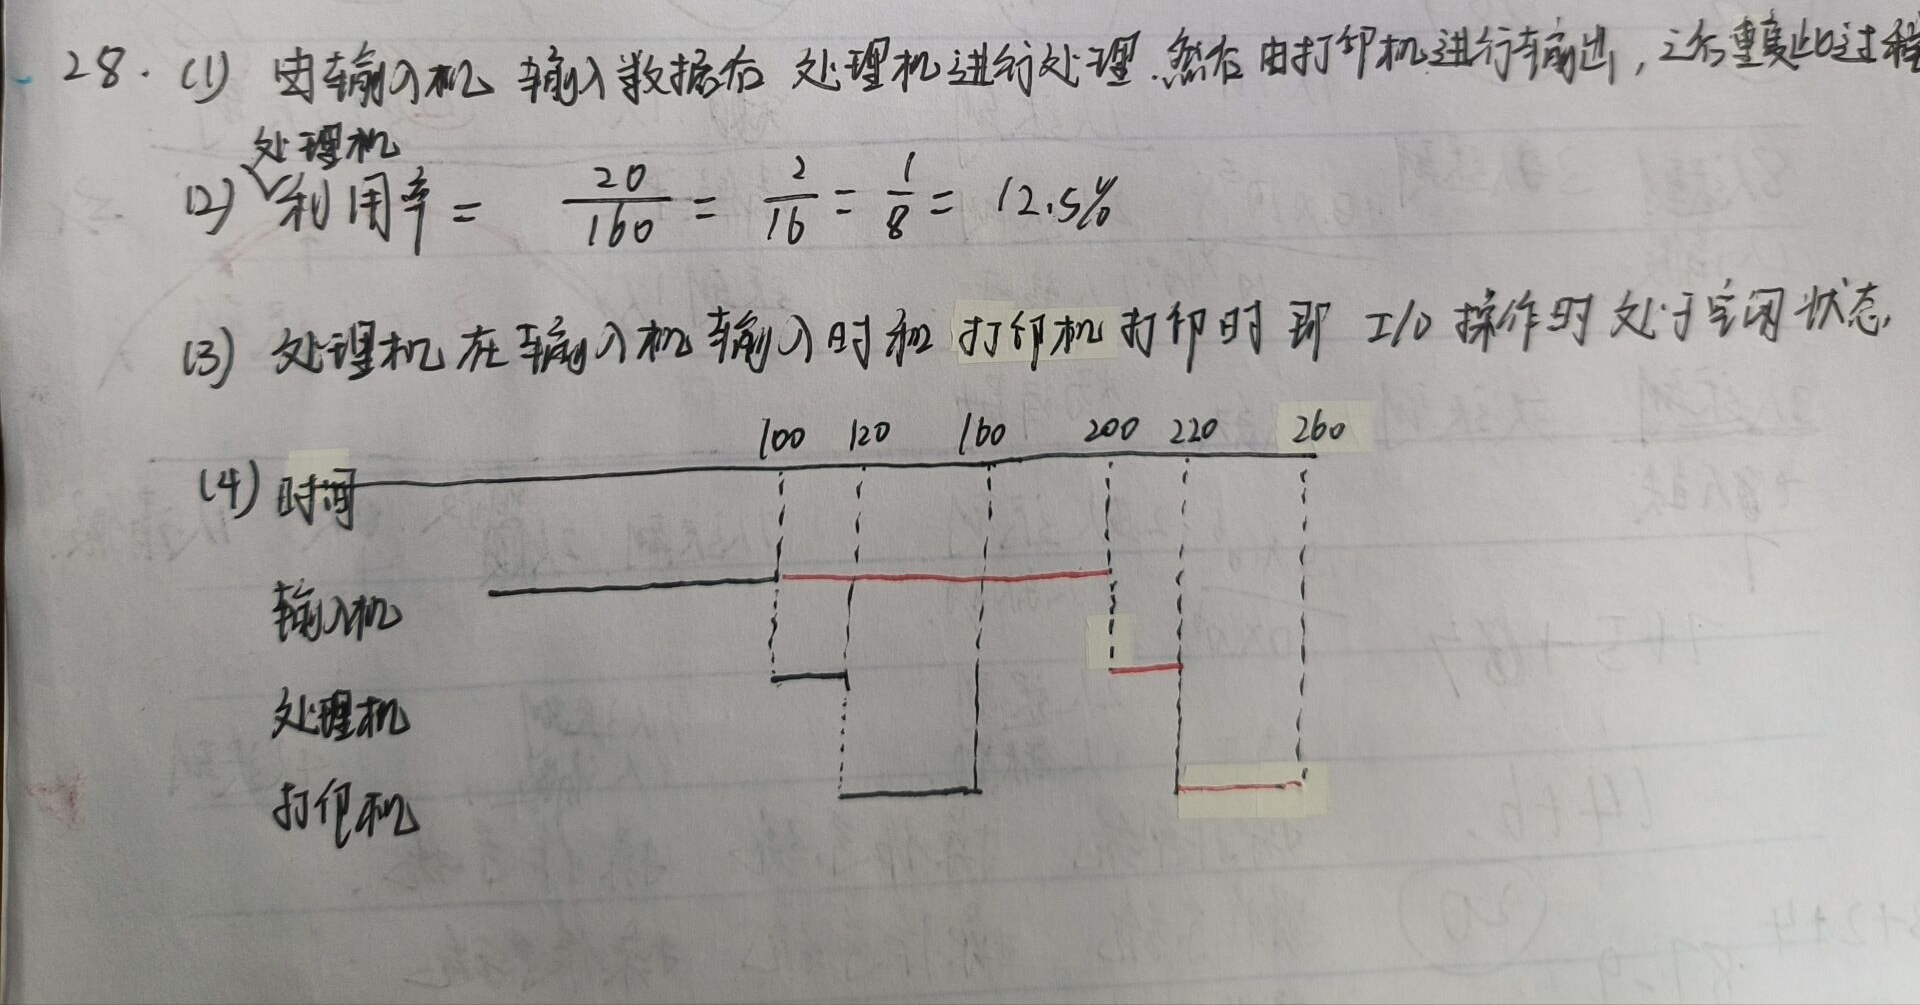 28. (1) 由输入机 输入数据后 处理机进行处理.然后由打印机进行输出,之后重复此过程
处理机
(2) 利用率 = 20/160 = 2/16 = 1/8 = 12.5%
(3) 处理机在输入机输入时和打印机打印时即 I/O 操作时处于空闲状态.
100 120 160 200 220 260
(4) 时间
输入机
处理机
打印机